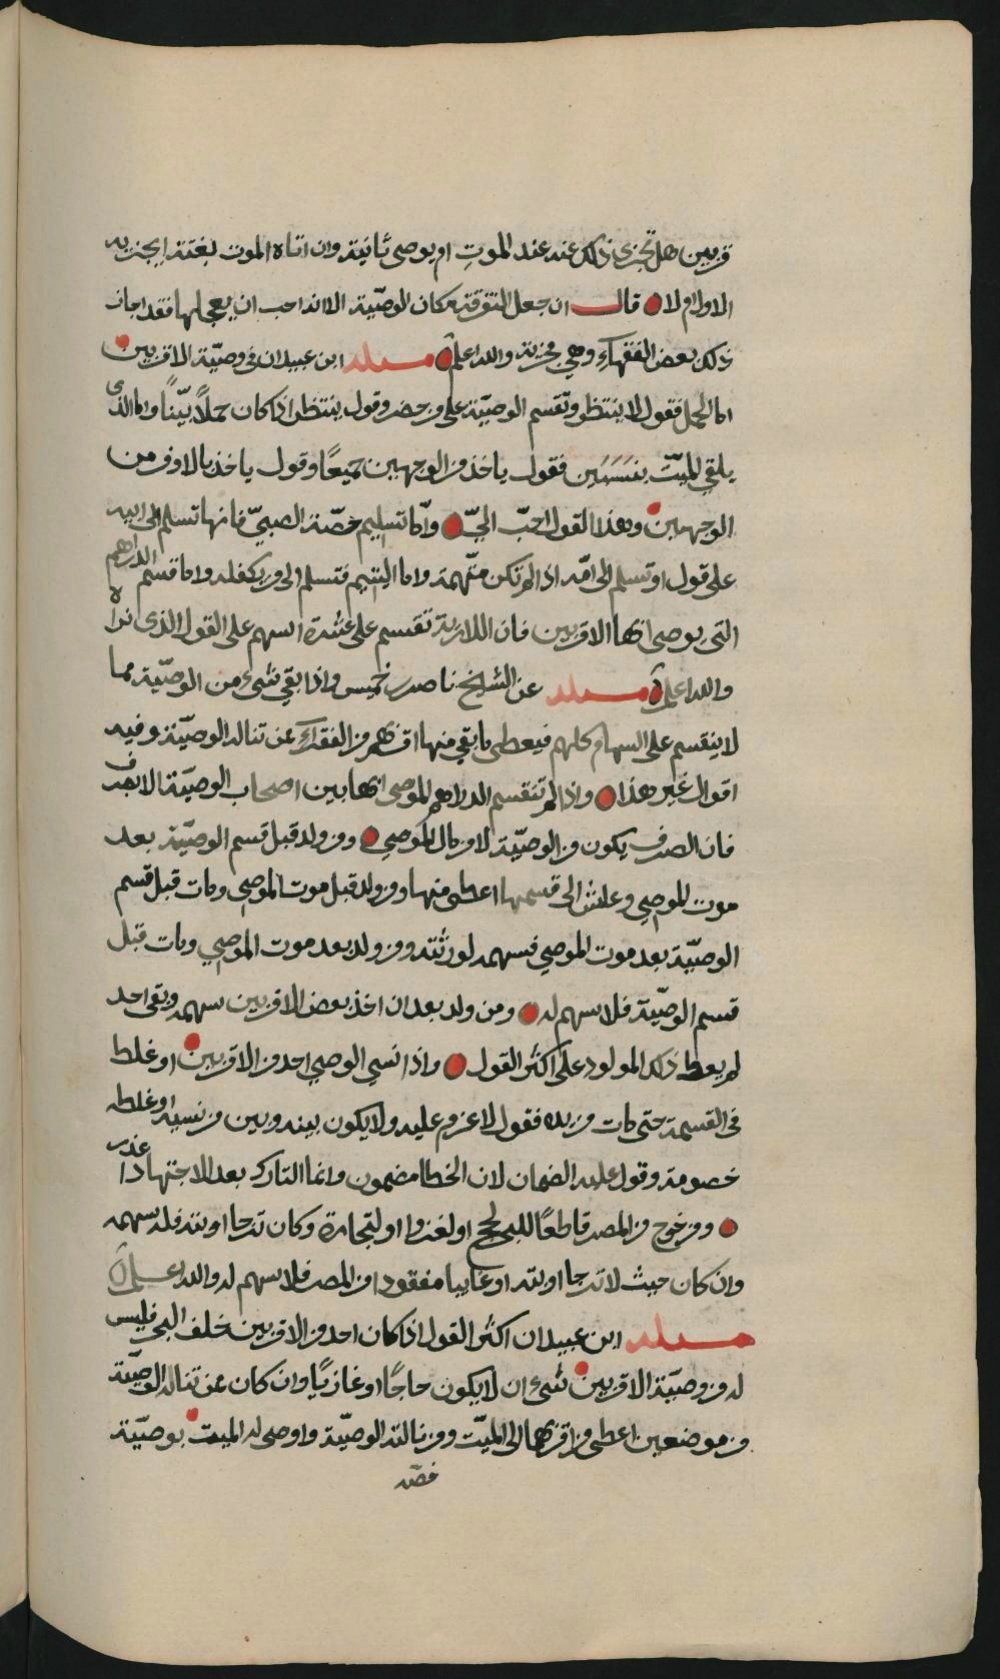 قربين هل تجزي ذلك عنه عند الموت ام يوصي ثانية وان اتاه الموت بغتة ايجزيه
الاول ام لا قال ان جعل التفرقة مكان الوصيّة الا انه احب ان يعجلها فقد اجاز
ذلك بعض الفقهاء وهي مجزية والله اعلم مسئلة ابن عبيدان في وصيّة الاقربين
اما الحمل فقول لا ينتظر وتقسم الوصيّة على من حضر وقول ينتظر اذا كان حملاً بيّناً واما الذي
يلقي الميّت بنسبين فقول ياخذ من الوجهين جميعًا وقول ياخذ بالاوفر من
الوجهين وهذا القول احبّ اليّ وامّا تسليم حصّة الصبيّ فانها تسلم الى ابيه
على قول او تسلم الى امّه اذا لم تكن متّهمة واما اليتيم فتسلم الى من يكفله واما قسم الدراهم
التي يوصى بها الاقربين فان اللارية تقسم على عشرة اسهم على القول الذي نراه
والله اعلم مسئلة عن الشيخ ناصر بن خميس واذا بقي شيء من الوصيّة مما
لا ينقسم على السهام كلهم فيعطى ما بقي منها اقربهم من الفقراء عن تناله الوصيّة وفيه
اقوال غير هذا واذا لم تنقسم الدراهم الموصى بها بين اصحاب الوصيّة الا بصرف
فان الصرف يكون من الوصيّة لا من مال الموصي ومن ولد قبل قسم الوصيّة بعد
موت الموصي وعاش الى قسمها اعطى منها ومن ولد قبل موت الموصي ومات قبل قسم
الوصيّة بعد موت الموصي فسهمه لورثته ومن ولد بعد موت الموصي ومات قبل
قسم الوصيّة فلا سهم له ومن ولد بعد ان اخذ بعض الاقربين سهمه وبقي احد
لم يعط ذلك المولود على اكثر القول واذا نسي الوصي احد من الاقربين او غلط
في القسمة حتى مات من يده فقول لا غرم عليه ولا يكون بينه وبين من نسيه او غلطه
خصومة وقول عليه الضمان لان الخطا مضمون وانما التارك بعد الاجتهاد اعذر
ومن خرج من المصر قاطعًا البحر لحج او لغزو او لتجارة وكان ترجا اوبته فله سهمه
وان كان حيث لا ترجا اوبته او غايبا مفقودا من المصر فلا سهم له والله اعلم
مسئلة ابن عبيدان اكثر القول اذا كان احد من الاقربين خلف البحر فليس
له من وصيّة الاقربين شيء ان لا يكون حاجًا او غازيًا وان كان عن تناله الوصيّة
من موضعين اعطى من اقربهما الى الميّت ومن نالته الوصيّة واوصى له الميت بوصيّة